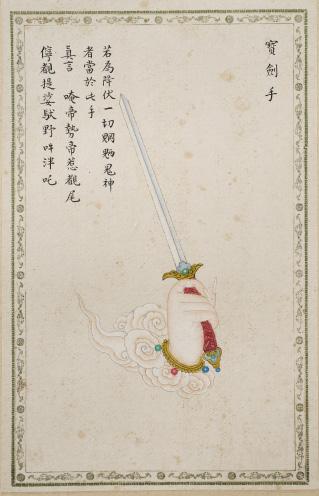 寶劍手
若為降伏一切魍魎鬼神
者當於此手
真言　唵帝勢帝惹覩尾
儜覩提婆馱野吽泮吒